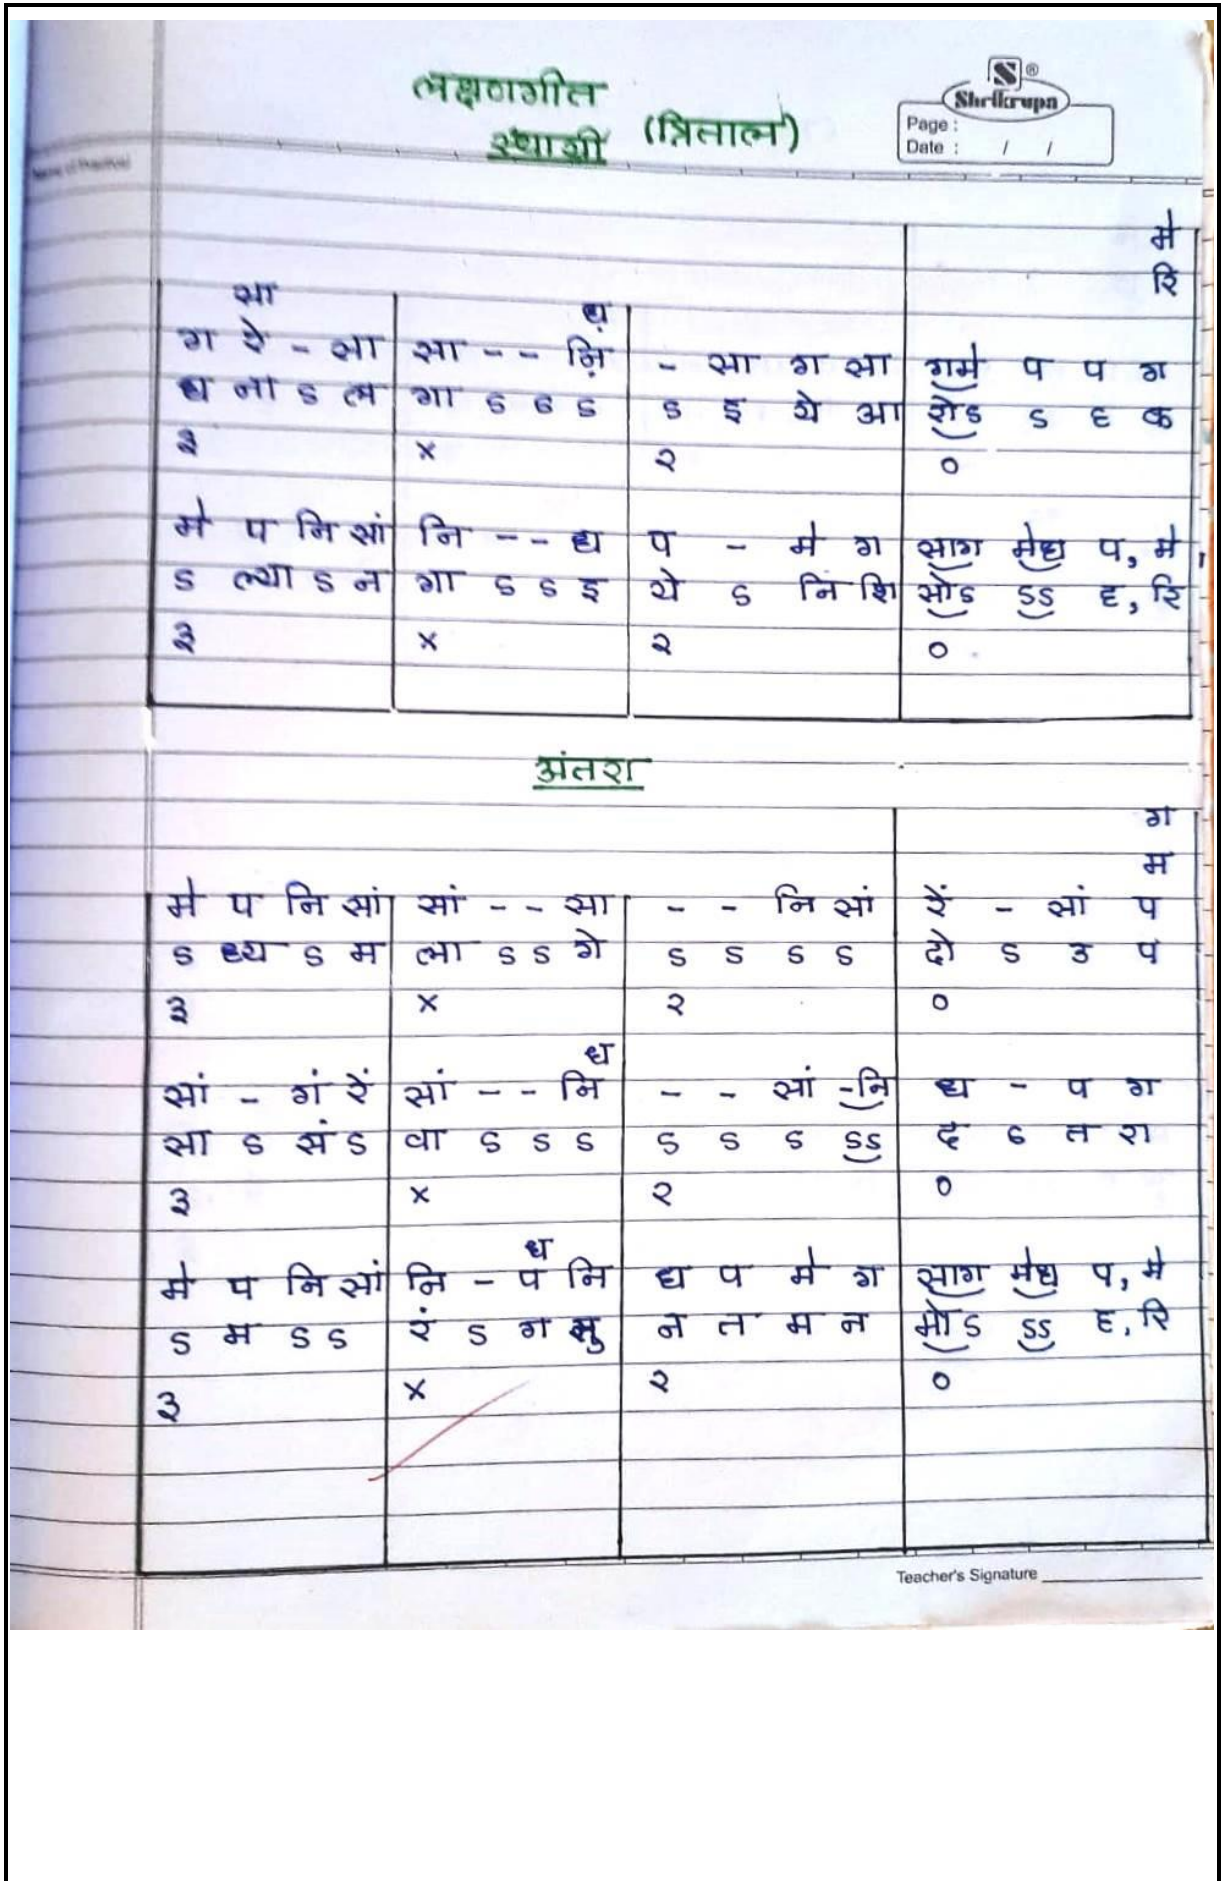 लक्षणगीत
स्थायी (त्रिताल)
S ®
Shrikrupa
Page :
Date : / /
मे
रि
सा ध़
ग रे - सा सा - - ऩि - सा ग सा गमे प प ग
ध ना ऽ ल गा ऽ ऽ ऽ ऽ इ ये आ रोऽ ऽ ह क
३ × २ ०
मे प नि सां नि - - ध प - मे ग साग मेध प, मे
ऽ ल्या ऽ न गा ऽ ऽ इ ये ऽ नि शि सोऽ ऽऽ ह, रि
३ × २ ०
अंतरा
ग
म
मे प नि सां सां - - सा - - नि सां रें - सां प
ऽ ध्य ऽ म ला ऽ ऽ गे ऽ ऽ ऽ ऽ दो ऽ उ प
३ × २ ०
ध
सां - गं रें सां - - नि - - सां -नि ध - प ग
सा ऽ सं ऽ वा ऽ ऽ ऽ ऽ ऽ ऽ ऽऽ द ऽ त रा
३ × २ ०
ध
मे प नि सां नि - प नि ध प मे ग साग मेध प, मे
ऽ म ऽ ऽ रं ऽ ग सु न त म न मोऽ ऽऽ ह, रि
३ × २ ०
Teacher's Signature